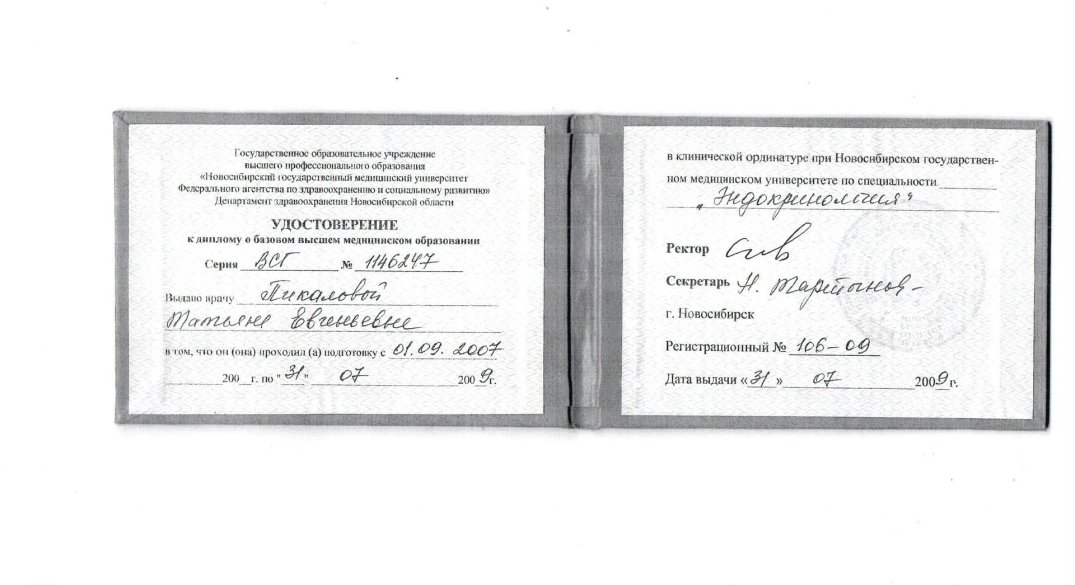 Государственное образовательное учреждение
высшего профессионального образования
«Новосибирский государственный медицинский университет
Федерального агентства по здравоохранению и социальному развитию»
Департамент здравоохранения Новосибирской области
УДОСТОВЕРЕНИЕ
к диплому о базовом высшем медицинском образовании
Серия ВСГ № 1146247
Выдано врачу Пикаловой
Татьяне Евгеньевне
в том, что он (она) проходил (а) подготовку с 01.09. 2007
200 г. по "31" 07 2009г.
в клинической ординатуре при Новосибирском государствен-
ном медицинском университете по специальности
„Эндокринология"
Ректор
Секретарь Н. Мартынов
г. Новосибирск
Регистрационный № 106-09
Дата выдачи «31» 07 2009г.